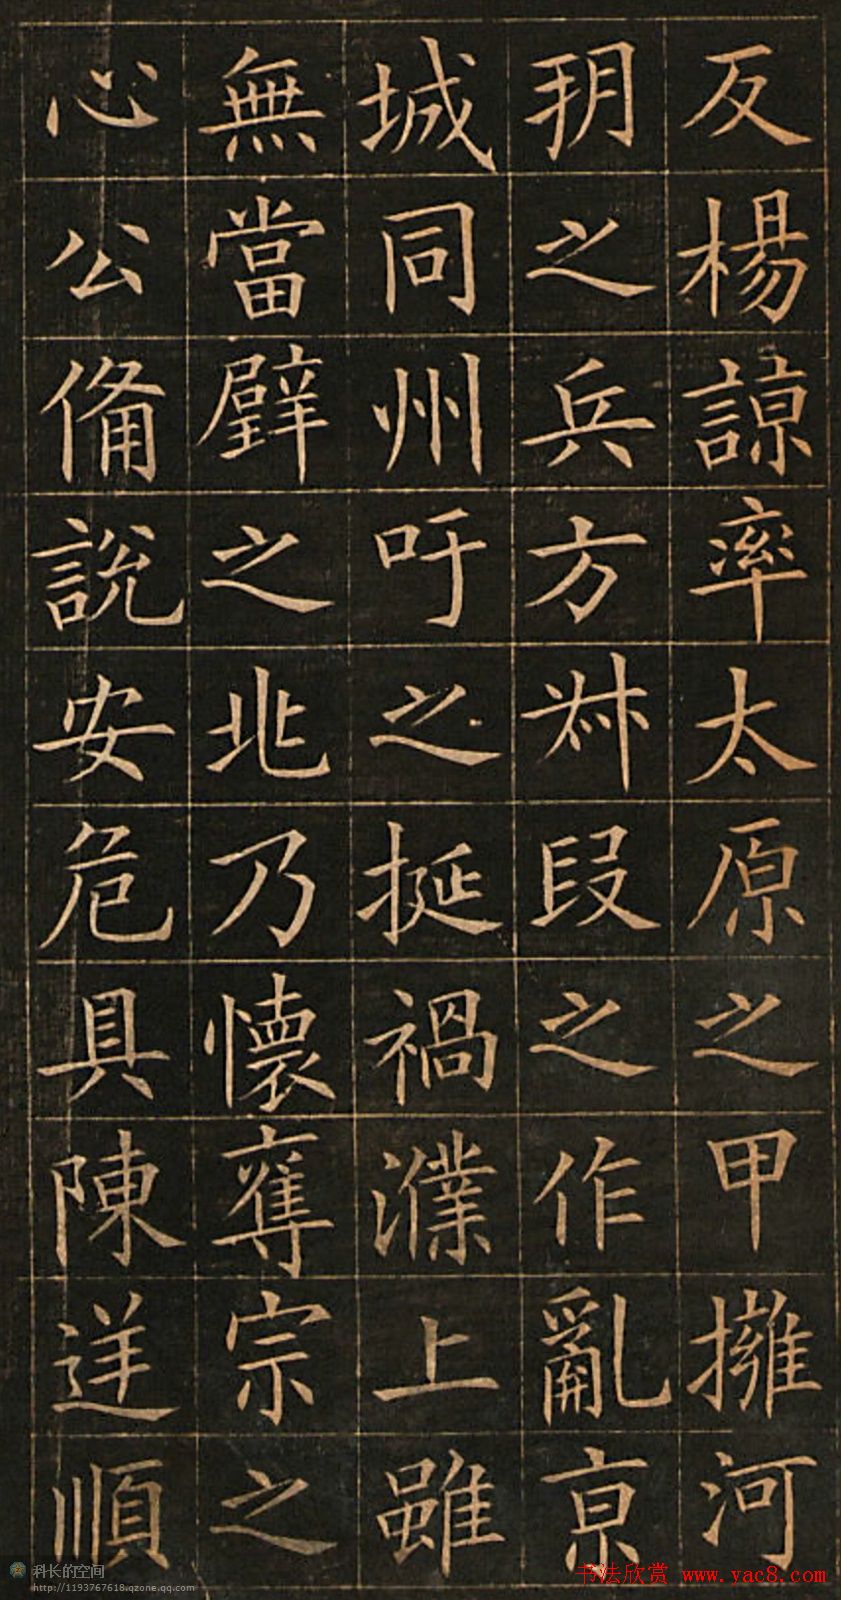 反楊諒率太原之甲擁河
朔之兵方叔段之作亂京
城同州吁之挻禍濮上雖
無當璧之兆乃懷奪宗之
心公備說安危具陳逆順
科长的空间
http://1193767618.qzone.qq.com
书法欣赏 www.yac8.com